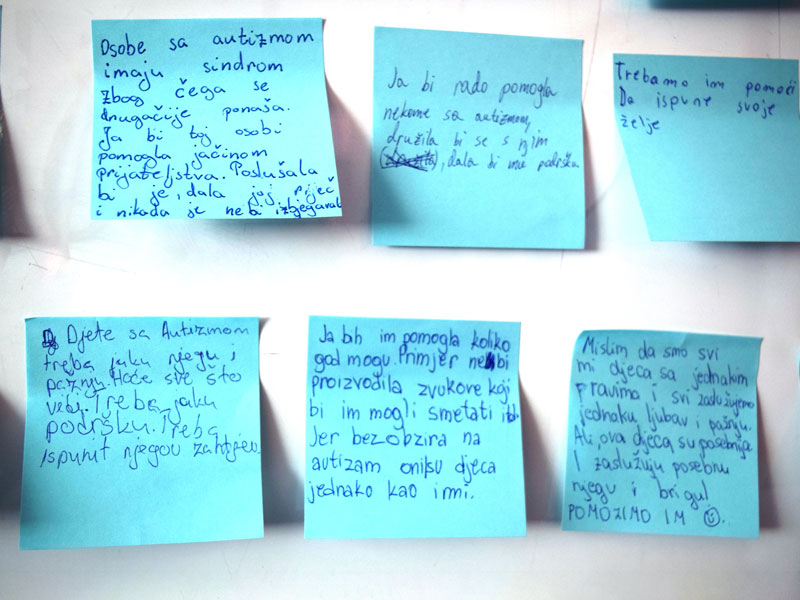 Osobe sa autizmom
imaju sindrom
zbog čega se
drugačije ponaša.
Ja bi toj osobi
pomogla jačinom
prijateljstva. Poslušala
bi je, dala joj riječ
i nikada je nebi izbjegavala
Ja bi rado pomogla
nekome sa autizmom,
družila bi se s njim
, dala bi mu podršku
Trebamo im pomoći
Da ispune svoje
želje
Djete sa Autizmom
treba jaku njegu i
pažnju. Hoće sve što
vidi. Treba jaku
podršku. Treba
ispunit njegov zahtjev.
Ja bih im pomogla koliko
god mogu. Primjer nebi
proizvodila zvukove koji
bi im mogli smetati itd.
Jer bez obzira na
autizam oni su djeca
jednako kao i mi.
Mislim da smo svi
mi djeca sa jednakim
pravima i svi zaslužujemo
jednaku ljubav i pažnju.
Ali, ova djeca su posebnija
I zaslužuju posebnu
njegu i brigu!
POMOZIMO IM ☺.